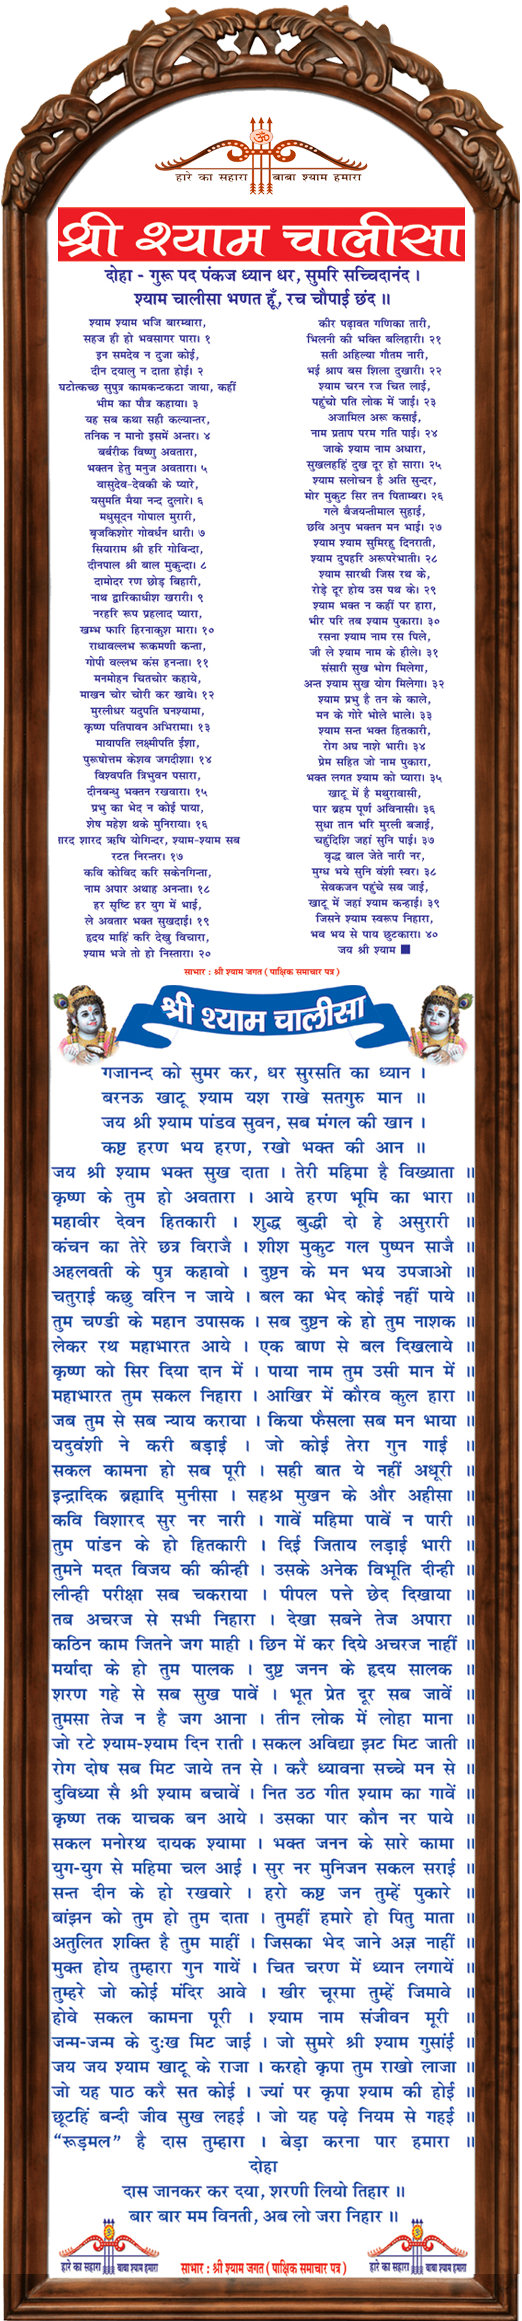 हारे का सहारा बाबा श्याम हमारा
श्री श्याम चालीसा
दोहा - गुरू पद पंकज ध्यान धर, सुमरि सच्चिदानंद ।
श्याम चालीसा भणत हूँ, रच चौपाई छंद ॥
श्याम श्याम भजि बारम्बारा,
सहज ही हो भवसागर पारा। १
इन समदेव न दुजा कोई,
दीन दयालु न दाता होई। २
घटोत्कच्छ सुपुत्र कामकन्टकटा जाया, कहीं
भीम का पौत्र कहाया। ३
यह सब कथा सही कल्यान्तर,
तनिक न मानो इसमें अन्तर। ४
बर्बरीक विष्णु अवतारा,
भक्तन हेतु मनुज अवतारा। ५
वासुदेव-देवकी के प्यारे,
यसुमति मैया नन्द दुलारे। ६
मधुसूदन गोपाल मुरारी,
बृजकिशोर गोवर्धन धारी। ७
सियाराम श्री हरि गोविन्दा,
दीनपाल श्री बाल मुकुन्दा। ८
दामोदर रण छोड़ बिहारी,
नाथ द्वारिकाधीश खरारी। ९
नरहरि रूप प्रहलाद प्यारा,
खम्भ फारि हिरनाकुश मारा। १०
राधावल्लभ रूकमणी कन्ता,
गोपी वल्लभ कंस हनन्ता। ११
मनमोहन चितचोर कहाये,
माखन चोर चोरी कर खाये। १२
मुरलीधर यदुपति घनश्यामा,
कृष्ण पतिपावन अभिरामा। १३
मायापति लक्ष्मीपति ईशा,
पुरूषोत्तम केशव जगदीशा। १४
विश्वपति त्रिभुवन पसारा,
दीनबन्धु भक्तन रखवारा। १५
प्रभु का भेद न कोई पाया,
शेष महेश थके मुनिराया। १६
ारद शारद ऋषि योगिन्दर, श्याम-श्याम सब
रटत निरन्तर। १७
कवि कोविद करि सकेनगिन्ता,
नाम अपार अथाह अनन्ता। १८
हर सृष्टि हर युग में भाई,
ले अवतार भक्त सुखदाई। १९
हृदय माहिं करि देखु विचारा,
श्याम भजे तो हो निस्तारा। २०
कीर पढ़ावत गणिका तारी,
भिलनी की भक्ति बलिहारी। २१
सती अहिल्या गौतम नारी,
भई श्राप बस शिला दुखारी। २२
श्याम चरन रज चित लाई,
पहुंचो पति लोक में जाई। २३
अजामिल अरू कसाई,
नाम प्रताप परम गति पाई। २४
जाके श्याम नाम अधारा,
सुखलहहिं दुख दूर हो सारा। २५
श्याम सलोचन है अति सुन्दर,
मोर मुकुट सिर तन पिताम्बर। २६
गले बैजयन्तीमाल सुहाई,
छवि अनुप भक्तन मन भाई। २७
श्याम श्याम सुमिरहु दिनराती,
श्याम दुपहरि अरूपरेभाती। २८
श्याम सारथी जिस रथ के,
रोड़े दूर होय उस पथ के। २९
श्याम भक्त न कहीं पर हारा,
भीर परि तब श्याम पुकारा। ३०
रसना श्याम नाम रस पिले,
जी ले श्याम नाम के हीले। ३१
संसारी सुख भोग मिलेगा,
अन्त श्याम सुख योग मिलेगा। ३२
श्याम प्रभु है तन के काले,
मन के गोरे भोले भाले। ३३
श्याम सन्त भक्त हितकारी,
रोग अघ नाशे भारी। ३४
प्रेम सहित जो नाम पुकारा,
भक्त लगत श्याम को प्यारा। ३५
खाटू में है मथुरावासी,
पार ब्रहम पूर्ण अविनासी। ३६
सुधा तान भरि मुरली बजाई,
चहुंदिशि जहां सुनि पाई। ३७
वृद्ध बाल जेते नारी नर,
मुग्ध भये सुनि वंशी स्वर। ३८
सेवकजन पहुंचे सब जाई,
खाटू में जहां श्याम कन्हाई। ३९
जिसने श्याम स्वरूप निहारा,
भव भय से पाय छुटकारा। ४०
जय श्री श्याम
साभार : श्री श्याम जगत ( पाक्षिक समाचार पत्र )
श्री श्याम चालीसा
गजानन्द को सुमर कर, धर सुरसति का ध्यान ।
बरनऊ खाटू श्याम यश राखे सतगुरु मान ॥
जय श्री श्याम पांडव सुवन, सब मंगल की खान ।
कष्ट हरण भय हरण, रखो भक्त की आन ॥
जय श्री श्याम भक्त सुख दाता । तेरी महिमा है विख्याता ॥
कृष्ण के तुम हो अवतारा । आये हरण भूमि का भारा ॥
महावीर देवन हितकारी । शुद्ध बुद्धी दो हे असुरारी ॥
कंचन का तेरे छत्र विराजै । शीश मुकुट गल पुष्पन साजै ॥
अहलवती के पुत्र कहावो । दुष्टन के मन भय उपजाओ ॥
चतुराई कछु वरिन न जाये । बल का भेद कोई नहीं पाये ॥
तुम चण्डी के महान उपासक । सब दुष्टन के हो तुम नाशक ॥
लेकर रथ महाभारत आये । एक बाण से बल दिखलाये ॥
कृष्ण को सिर दिया दान में । पाया नाम तुम उसी मान में ॥
महाभारत तुम सकल निहारा । आखिर में कौरव कुल हारा ॥
जब तुम से सब न्याय कराया । किया फैसला सब मन भाया ॥
यदुवंशी ने करी बड़ाई । जो कोई तेरा गुन गाई ॥
सकल कामना हो सब पूरी । सही बात ये नहीं अधूरी ॥
इन्द्रादिक ब्रह्मादि मुनीसा । सहश्र मुखन के और अहीसा ॥
कवि विशारद सुर नर नारी । गावें महिमा पावें न पारी ॥
तुम पांडन के हो हितकारी । दिई जिताय लड़ाई भारी ॥
तुमने मदत विजय की कीन्ही । उसके अनेक विभूति दीन्ही ॥
लीन्ही परीक्षा सब चकराया । पीपल पत्ते छेद दिखाया ॥
तब अचरज से सभी निहारा । देखा सबने तेज अपारा ॥
कठिन काम जितने जग माही । छिन में कर दिये अचरज नाहीं ॥
मर्यादा के हो तुम पालक । दुष्ट जनन के हृदय सालक ॥
शरण गहे से सब सुख पावें । भूत प्रेत दूर सब जावें ॥
तुमसा तेज न है जग आना । तीन लोक में लोहा माना ॥
जो रटे श्याम-श्याम दिन राती । सकल अविद्या झट मिट जाती ॥
रोग दोष सब मिट जाये तन से । करै ध्यावना सच्चे मन से ॥
दुविध्या सै श्री श्याम बचावें । नित उठ गीत श्याम का गावें ॥
कृष्ण तक याचक बन आये । उसका पार कौन नर पाये ॥
सकल मनोरथ दायक श्यामा । भक्त जनन के सारे कामा ॥
युग-युग से महिमा चल आई । सुर नर मुनिजन सकल सराई ॥
सन्त दीन के हो रखवारे । हरो कष्ट जन तुम्हें पुकारे ॥
बांझन को तुम हो तुम दाता । तुमहीं हमारे हो पितु माता ॥
अतुलित शक्ति है तुम माहीं । जिसका भेद जाने अज्ञ नाहीं ॥
मुक्त होय तुम्हारा गुन गायें । चित चरण में ध्यान लगायें ॥
तुम्हरे जो कोई मंदिर आवे । खीर चूरमा तुम्हें जिमावे ॥
होवे सकल कामना पूरी । श्याम नाम संजीवन मूरी ॥
जन्म-जन्म के दुःख मिट जाई । जो सुमरे श्री श्याम गुसांई ॥
जय जय श्याम खाटू के राजा । करहो कृपा तुम राखो लाजा ॥
जो यह पाठ करै सत कोई । ज्यां पर कृपा श्याम की होई ॥
छूटहिं बन्दी जीव सुख लहई । जो यह पढ़े नियम से गहई ॥
“रूड़मल” है दास तुम्हारा । बेड़ा करना पार हमारा ॥
दोहा
दास जानकर कर दया, शरणी लियो तिहार ॥
बार बार मम विनती, अब लो जरा निहार ॥
हारे का सहारा बाबा श्याम हमारा
साभार : श्री श्याम जगत ( पाक्षिक समाचार पत्र )
हारे का सहारा बाबा श्याम हमारा